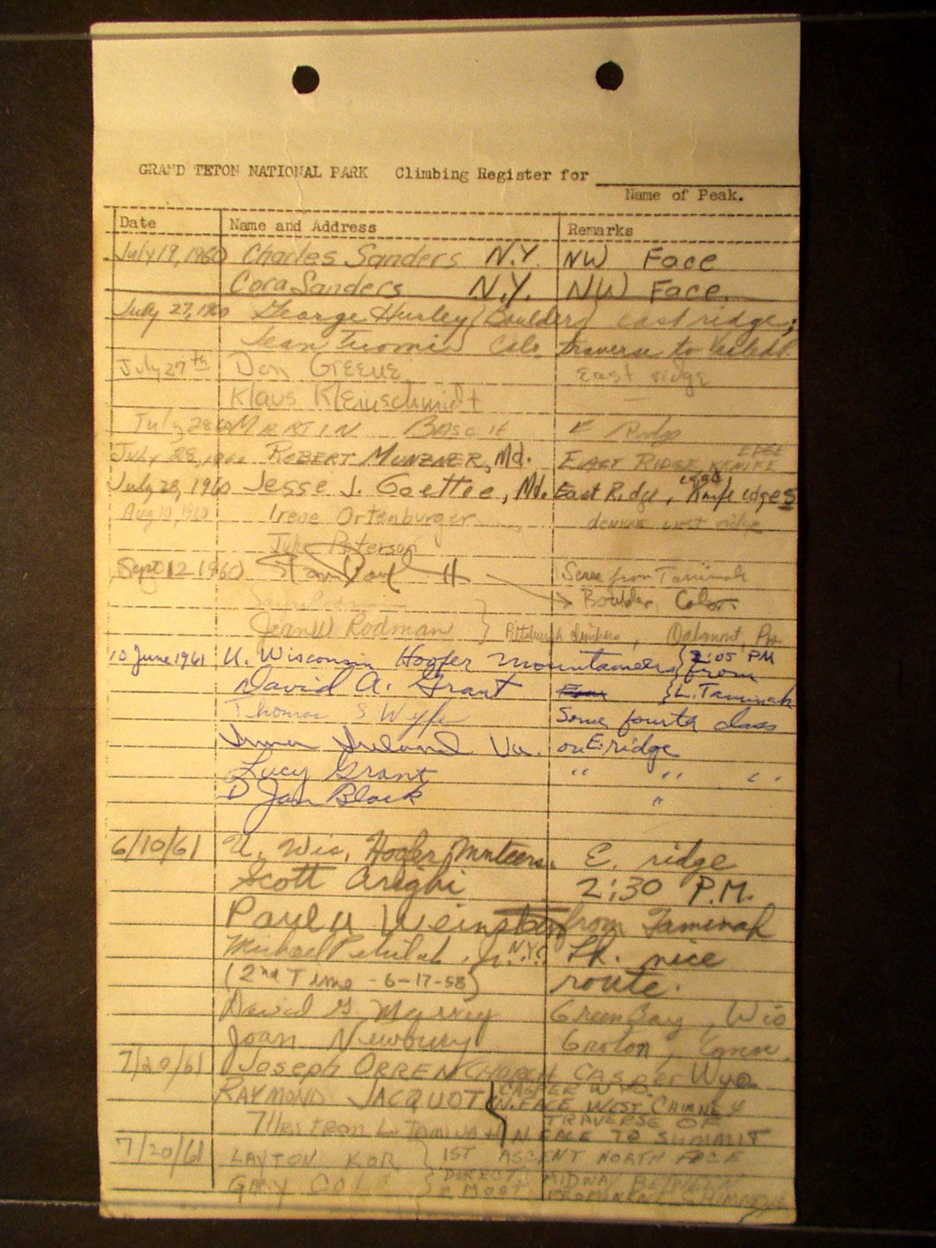 GRAND TETON NATIONAL PARK Climbing Register for
Name of Peak.
Date Name and Address Remarks
July 19, 1960 Charles Sanders N.Y. NW Face
Cora Sanders N.Y. NW Face
July 27, 1960 George Hurley Boulder east ridge;
Jean Colo. traverse to
July 27th Don Greene east ridge
Klaus Kleinschmidt
July 28 MARTIN
July 28, 1960 ROBERT MUNZNER, Md. EAST RIDGE, KNIFE EDGE
July 28, 1960 Jesse J. Goettee, Md. East Ridge, Knife edges
Aug 10, 1960 Irene Ortenburger west ridge
Julie Peterson
Sept 12 1960 Scree from Taminah
Boulder, Color.
Jean W Rodman } Pittsburgh climbers, Oakmont, Pa.
10 June 1961 U. Wisconsin Hoofer Mountaineers { 2:05 PM from
David A. Grant L. Taminah
Thomas S Wyfe Some fourth class
Ireland Va. on E. ridge
Lucy Grant " " "
D Jan Black "
6/10/61 U. Wis. Hoofer Mnteers. E. ridge
Scott Arighi 2:30 P.M.
Paul Weinstein from Taminah
Michael Jr. N.Y.C. Lk. nice
(2nd Time - 6-17-58) route.
David G. Green Bay, Wis
Joan Newbury Groton, Conn.
7/20/61 Joseph ORREN CHURCH CASPER Wyo.
RAYMOND JACQUOT { CASPER WYO.
N. FACE WEST CHIMNEY
TRAVERSE OF
7 Hrs from L. TAMINAH N FACE TO SUMMIT
7/20/61 LAYTON KOR { 1ST ASCENT NORTH FACE
GARY COLE { DIRECT, MIDWAY BETWEEN
2 MOST PROMINENT CHIMNEYS